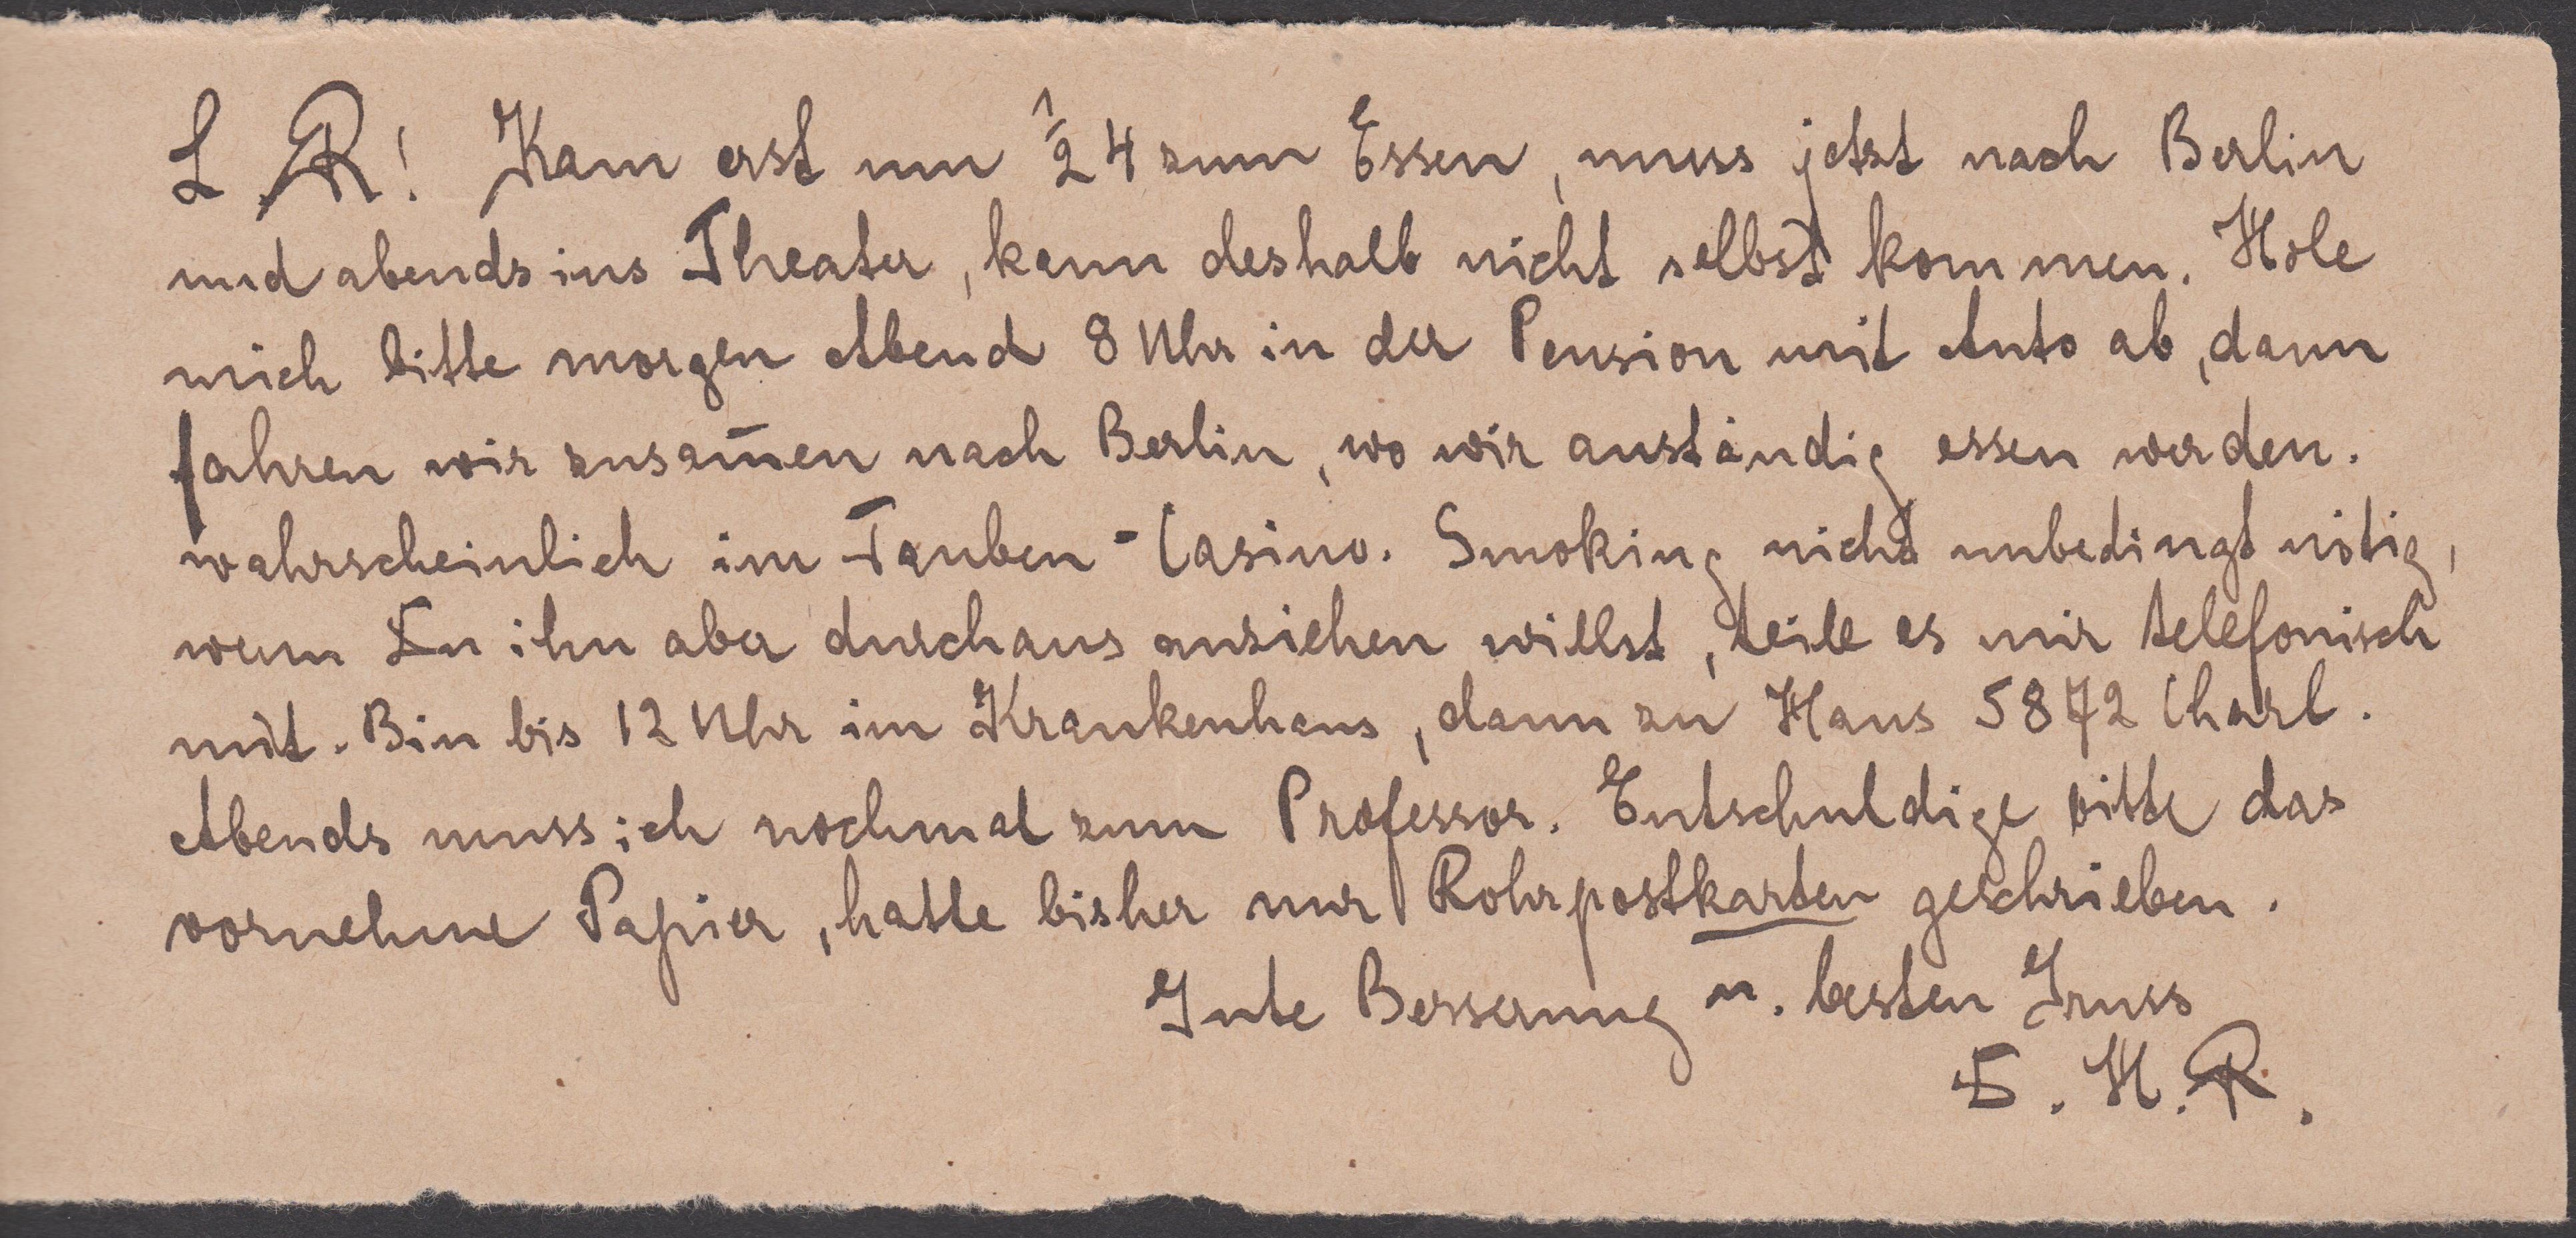 L. R! Kam erst um ½4 zum Essen, muss jetzt nach Berlin
und abends ins Theater, kann deshalb nicht selbst kommen. Hole
mich bitte morgen Abend 8 Uhr in der Pension mit Auto ab, dann
fahren wir zusam̅en nach Berlin, wo wir anständig essen werden.
wahrscheinlich im Tauben-Casino. Smoking nicht unbedingt nötig,
wenn Du ihn aber durchaus anziehen willst, teile es mir telefonisch
mit. Bin bis 12 Uhr im Krankenhaus, dann zu Haus 5872 Charl.
Abends muss ich nochmal zum Professor. Entschuldige bitte das
vornehme Papier, hatte bisher nur Rohrpostkarten geschrieben.
Gute Besserung u. besten Gruss
D. H. R.